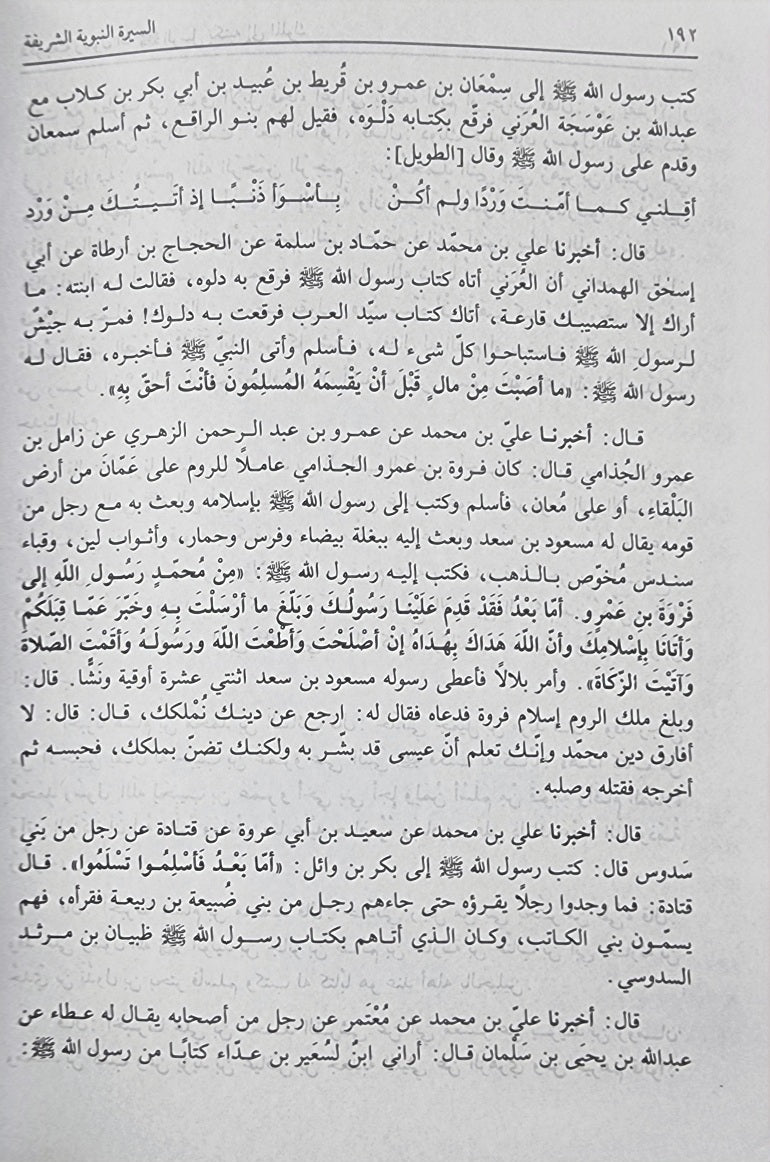 ١٩٢
السيرة النبوية الشريفة
كتب رسول الله ﷺ إلى سِمْعَان بن عمرو بن قُريط بن عُبيد بن أبي بكر بن كلاب مع
عبدالله بن عَوْسَجَة العُرَني فرقّع بكِتابه دَلْوَه، فقيل لهم بنو الراقع، ثم أسلم سمعان
وقدم على رسول الله ﷺ وقال [الطويل]:
أقِلني كما أمّنتَ وَرْدًا ولم أكُنْ بِأسْوَأ ذَنْبًا إذ أتَيتُكَ مِنْ وَرْدِ
قال: أخبرنا علي بن محمّد عن حمّاد بن سلمة عن الحجاج بن أرطاة عن أبي
إسحٰق الهمداني أن العُرَني أتاه كتاب رسول الله ﷺ فرقع به دلوه، فقالت له ابنته: ما
أراك إلا ستصيبك قارعة، أتاك كتاب سيّد العرب فرقعت به دلوك! فمرّ به جيْشٌ
لرسولِ الله ﷺ فاستباحوا كلّ شيء له، فأسلم وأتى النبيّ ﷺ فأخبره، فقال له
رسول الله ﷺ: «ما أصَبْتَ مِنْ مالٍ قَبْلَ أنْ يَقْسِمَهُ المُسلِمُونَ فَأنْتَ أحَقّ بِهِ».
قال: أخبرنا عليّ بن محمد عن عمرو بن عبد الرحمن الزهري عن زامل بن
عمرو الجُذامي قال: كان فروة بن عمرو الجذامي عاملًا للروم على عَمّانَ من أرض
البَلْقاءِ، أو على مُعان، فأسلم وكتب إلى رسول الله ﷺ بإسلامه وبعث به مع رجل من
قومه يقال له مسعود بن سعد وبعث إليه ببغلة بيضاء وفرس وحمار، وأثواب لين، وقباء
سندس مُخوّص بالذهب، فكتب إليه رسول الله ﷺ: «مِنْ مُحمّدٍ رَسُولِ اللهِ إلى
فَرْوَةَ بنِ عَمْرٍو. أمّا بَعْدُ فَقَدْ قَدِمَ عَلَيْنَا رَسُولُكَ وَبَلّغَ ما أرْسَلْتَ بِهِ وخَبّرَ عَمّا قِبَلَكُمْ
وَأتَانَا بِإسْلامِكَ وأنّ اللهَ هَدَاكَ بِهُدَاهُ إنْ أصْلَحْتَ وَأطَعْتَ اللهَ ورَسُولَهُ وَأقَمْتَ الصّلاةَ
وَآتَيْتَ الزّكَاةَ». وأمر بلالًا فأعطى رسوله مسعود بن سعد اثنتي عشرة أوقية ونَشًّا. قال:
وبلغ ملك الروم إسلام فروة فدعاه فقال له: ارجع عن دينك نُمْلكك، قال: قال: لا
أفارق دين محمّد وإنّك تعلم أنّ عيسى قد بشّر به ولكنك تضنّ بملكك، فحبسه ثم
أخرجه فقتله وصلبه.
قال: أخبرنا علي بن محمد عن سعيد بن أبي عروة عن قتادة عن رجل من بَني
سَدوس قال: كتب رسول الله ﷺ إلى بكر بن وائل: «أمّا بَعْدُ فَأسْلِمُوا تَسْلَمُوا». قال
قتادة: فما وجدوا رجلًا يقرؤه حتى جاءهم رجل من بني ضُبيعة بن ربيعة فقرأه، فهم
يسمّون بني الكاتب، وكان الذي أتاهم بكتاب رسول الله ﷺ ظبيان بن مرثد
السدوسي.
قال: أخبرنا عليّ بن محمد عن مُعْتَمر عن رجل من أصحابه يقال له عطاء عن
عبدالله بن يحيَى بن سَلْمان قال: أراني ابنٌ لسُعَير بن عدّاء كتابًا من رسول الله ﷺ: